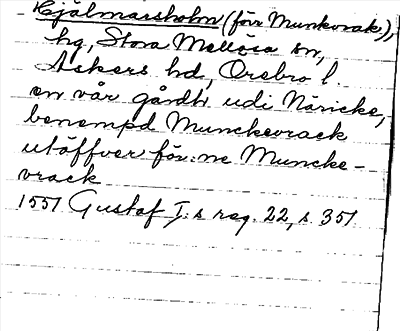 Hjälmarsholm (förr Munkvrak,),
hg, Stora Mellösa sn,
Askers hd, Örebro l.
en vår gårdh udi Näricke,
benempd Munckevrack
utöffver för:ne Muncke-
vrack
1551 Gustaf I:s reg. 22, s. 351.